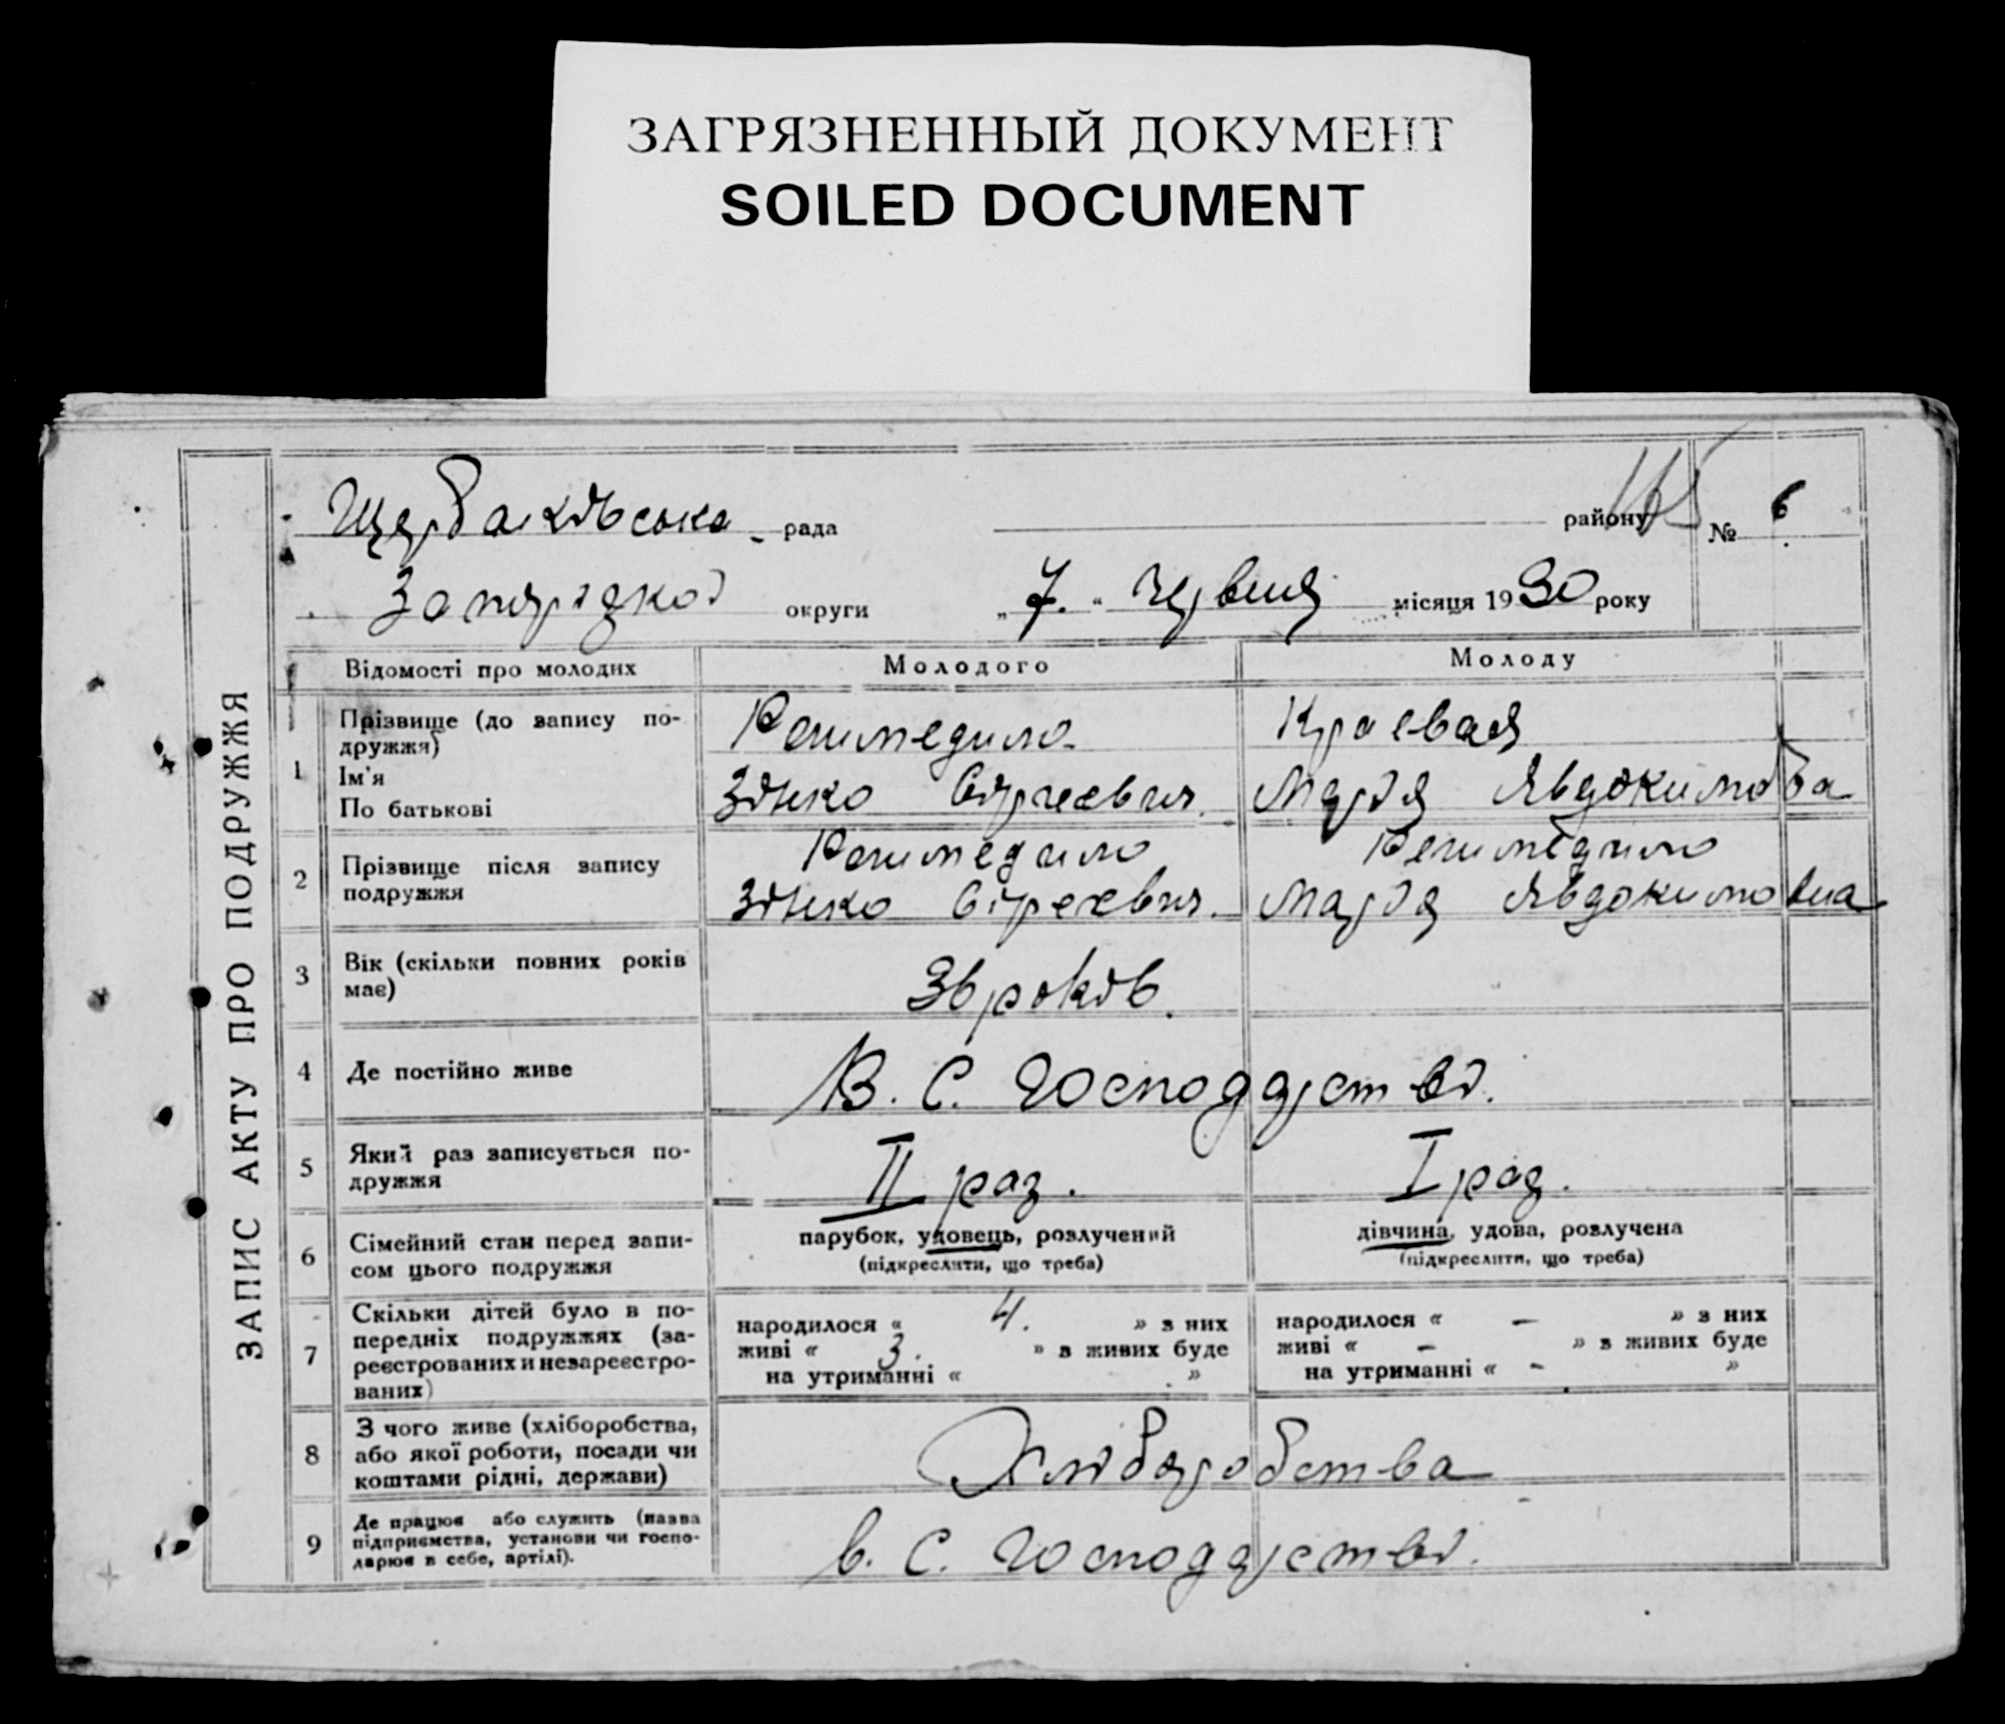 ЗАГРЯЗНЕННЫЙ ДОКУМЕНТ
SOILED DOCUMENT
ЗАПИС АКТУ ПРО ПОДРУЖЖЯ
Щербаківська рада району № 6
округи „7.“ червня місяця 1930 року
Відомості про молодих Молодого Молоду
1 Прізвище (до запису по-
дружжя)
Ім'я
По батькові
Краевая
Марія Явдокимовна
2 Прізвище після запису
подружжя
Марія Явдокимовна
3 Вік (скільки повних років
має)
36 років.
4 Де постійно живе
В. С. Господарстві.
5 Який раз записується по-
дружжя
II раз. I раз.
6 Сімейний стан перед запи-
сом цього подружжя
парубок, удовець, розлучений
(підкреслити, що треба)
дівчина, удова, розлучена
(підкреслити, що треба)
7 Скільки дітей було в по-
передніх подружжях (за-
реєстрованих и незареєстро-
ваних)
народилося « 4. » з них
живі « 3. » з живих буде
на утриманні « »
народилося « – » з них
живі « – » з живих буде
на утриманні « – »
8 З чого живе (хліборобства,
або якої роботи, посади чи
коштами рідні, держави)
Хліборобства
9 Де працює або служить (назва
підприємства, установи чи госпо-
дарює в себе, артілі).
в. С. Господарстві.